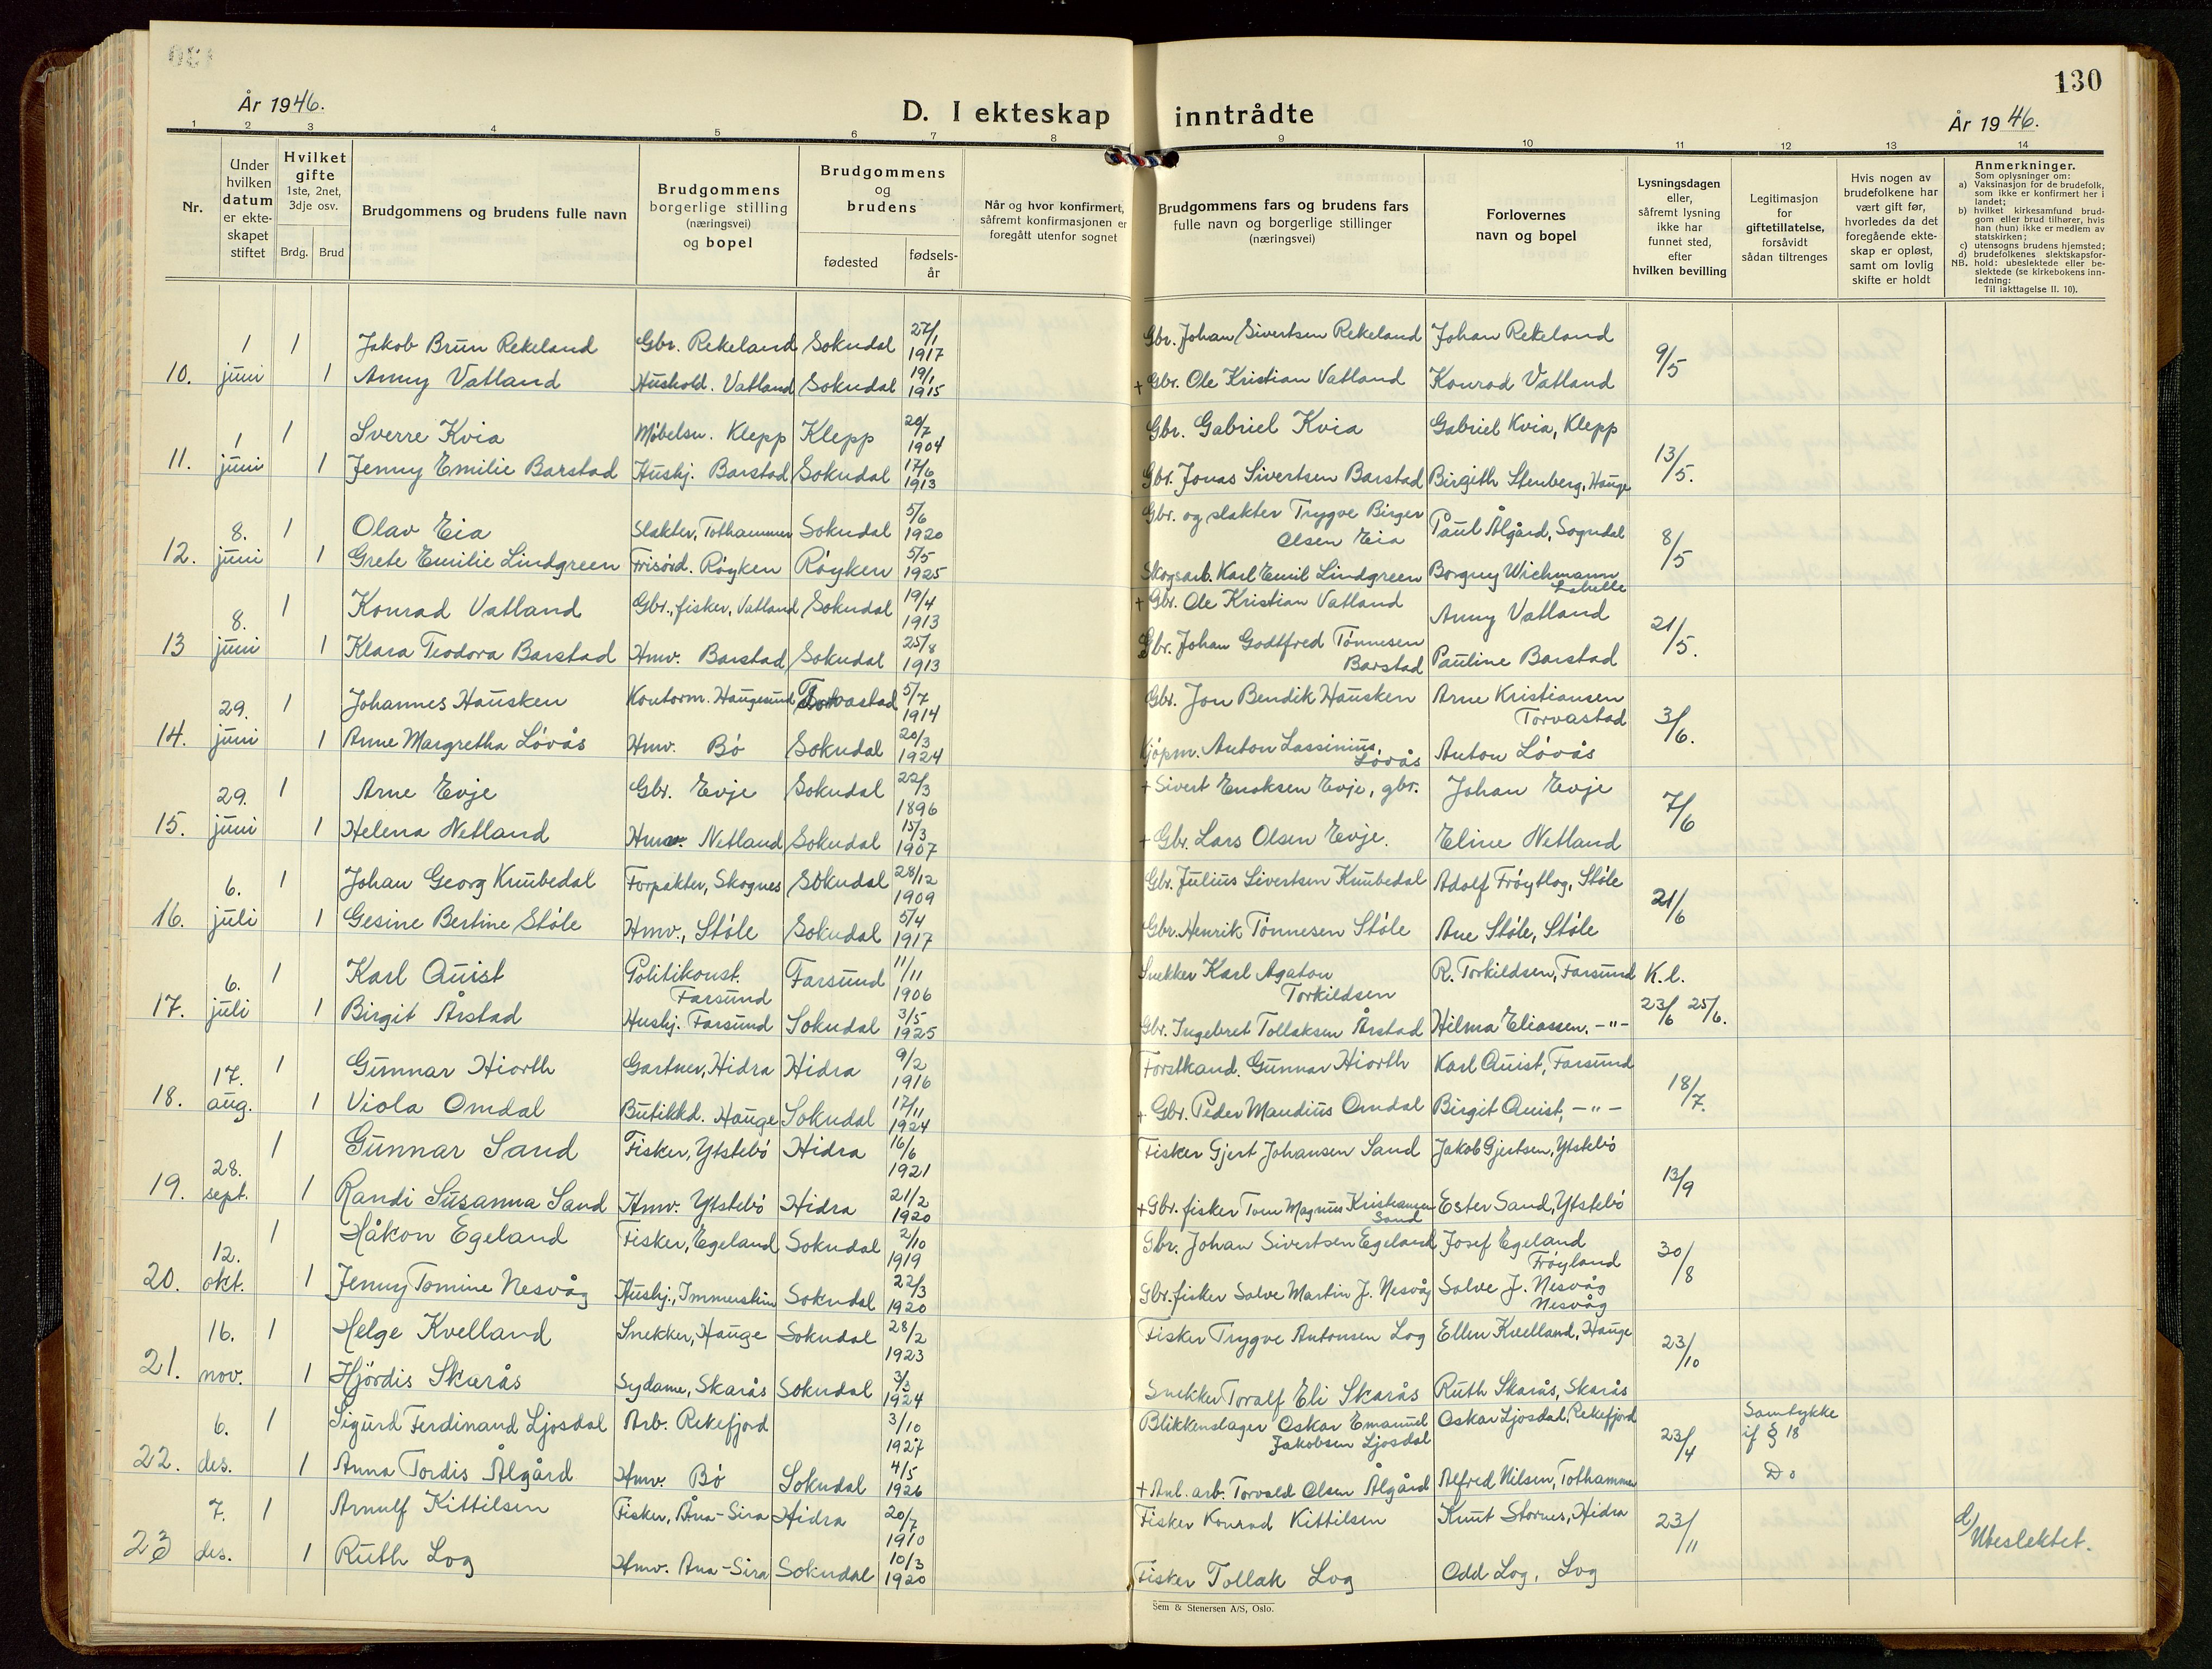 130
År 1946.
D. I ekteskap inntrådte
År 1946.
1 2 3 4 5 6 7 8 9 10 11 12 13 14
Nr.
Under hvilken datum er ekteskapet stiftet
Hvilket gifte
1ste, 2net, 3dje osv.
Brdg. Brud
Brudgommens og brudens fulle navn
Brudgommens borgerlige stilling (næringsvei) og bopel
Brudgommens og brudens
fødested
fødsels-år
Når og hvor konfirmert, såfremt konfirmasjonen er foregått utenfor sognet
Brudgommens fars og brudens fars fulle navn og borgerlige stillinger (næringsvei)
Forlovernes navn og bopel
Lysningsdagen eller, såfremt lysning ikke har funnet sted, efter hvilken bevilling
Legitimasjon for giftetillatelse, forsåvidt sådan tiltrenges
Hvis nogen av brudefolkene har vært gift før, hvorledes da det foregående ekteskap er opløst, samt om lovlig skifte er holdt
Anmerkninger.
Som oplysninger om:
a) Vaksinasjon for de brudefolk, som ikke er konfirmert her i landet;
b) hvilket kirkesamfund brudgom eller brud tilhører, hvis han (hun) ikke er medlem av statskirken;
c) utensogns brudens hjemsted;
d) brudefolkenes slektskapsforhold: ubeslektede eller beslektede (se kirkebokens innledning:
NB.
Til iakttagelse II. 10).
1 1 Jakob Brun Rekeland Gbr. Rekeland Sokndal 27/1 1917 Gbr. Johan Sivertsen Rekeland Johan Rekeland 9/5
10. juni 1 Anny Vatland Hushold. Vatland Sokndal 19/1 1915 + Gbr. Ole Kristian Vatland Konrad Vatland
1 1 Sverre Kvia Møbelsn. Klepp Klepp 20/7 1904 Gbr. Gabriel Kvia Gabriel Kvia, Klepp 13/5.
11. juni 1 Jenny Emilie Barstad Hushj. Barstad Sokndal 17/6 1913 Gbr. Jonas Sivertsen Barstad Birgith Stenberg, Hauge
8. 1 Olav Eia Slakter, Tothammer Sokndal 5/6 1920 Gbr. og slakter Trygve Birger Olsen Eia Paul Ålgård, Sogndal 8/5
12. juni 1 Grete Emilie Lindgreen Frisørd. Røyken Røyken 5/5 1925 Skogsarb. Karl Emil Lindgreen Borgny Wichmann
8. 1 Konrad Vatland Gbr., fisker, Vatland Sokndal 19/4 1913 + Gbr. Ole Kristian Vatland Anny Vatland 21/5.
13 juni 1 Klara Teodora Barstad Hmv. Barstad Sokndal 25/8 1913 Gbr. Johan Godtfred Tønnesen Barstad Pauline Barstad
29. 1 Johannes Hausken Kontorm. Haugesund Torvastad 5/7 1914 Gbr. Jon Bendik Hausken Arne Kristiansen Torvastad 3/6.
14. juni 1 Anne Margretha Løvås Hmv. Bø Sokndal 20/3 1924 Kjøpm. Anton Lassinius Løvås Anton Løvås
29. 1 Arne Evje Gbr. Evje Sokndal 22/3 1896 + Sivert Enoksen Evje, gbr. Johan Evje 7/6
15. juni 1 Helena Netland Hmv. Netland Sokndal 15/3 1907 + Gbr. Lars Olsen Evje. Eline Netland
6. 1 Johan Georg Knubedal Forpakter, Skognes Sokndal 28/12 1909 Gbr. Julius Sivertsen Knubedal Adolf Frøytlog, Støle 21/6
16. juli 1 Gesine Bertine Støle Hmv., Støle Sokndal 5/4 1917 Gbr. Henrik Tønnesen Støle Ane Støle, Støle
6. 1 Karl Quist Politikonst. Farsund Farsund 11/11 1906 Snekker Karl Agaton Torkildsen R. Torkildsen, Farsund K.l.
17. juli 1 Birgit Årstad Hushj. Farsund Sokndal 3/5 1925 Gbr. Ingebret Tollaksen Årstad Hilma Eliassen, -"- 23/6 25/6.
17. 1 Gunnar Hiorth Gartner, Hidra Hidra 9/2 1916 Forstkand. Gunnar Hiorth Karl Quist, Farsund 18/7.
18. aug. 1 Viola Omdal Butikkd. Hauge Sokndal 17/11 1924 + Gbr. Peder Maudius Omdal Birgit Quist, -"-
28. 1 Gunnar Sand Fisker, Ytstebø Hidra 16/6 1921 Fisker Gjert Johansen Sand Jakob Gjertsen, Ytstebø 13/9
19. sept. 1 Randi Susanna Sand Hmv. Ytstebø Hidra 21/2 1920 + Gbr. fisker Tom Magnus Kristiansen Sand Ester Sand, Ytstebø
12. 1 Håkon Egeland Fisker, Egeland Sokndal 2/10 1919 Gbr. Johan Sivertsen Egeland Josef Egeland Frøyland 30/8
20. okt. 1 Jenny Tomine Nesvåg Hushj., Immerstein Sokndal 22/3 1920 Gbr. fisker Salve Martin J. Nesvåg Salve J. Nesvåg Nesvåg
16. 1 Helge Kvelland Snekker, Hauge Sokndal 28/2 1923 Fisker Trygve Antonsen Log Ellen Kvelland, Hauge 23/10
21. nov. 1 Hjördis Skarås Sydame, Skarås Sokndal 3/3 1924 Snekker Toralf Eli Skarås Ruth Skarås, Skarås
6. 1 Sigurd Ferdinand Ljosdal Arb. Rekefjord 3/10 1927 Blikkenslager Oskar Emanuel Jakobsen Ljosdal Oskar Ljosdal, Rekefjord 23/4 Samtykke if § 18
22. des. 1 Anna Tordis Ålgård Hmv. Bø Sokndal 4/5 1926 + Anl. arb. Torvald Olsen Ålgård Alfred Nilsen, Tothammer Do
7. 1 Arnulf Kittilsen Fisker, Åna-Sira Hidra 20/7 1910 Fisker Konrad Kittilsen Knut Stornes, Hidra 23/11 d/ Ubeslektet.
23 des. 1 Ruth Log Hmv. Ana-Sira Sokndal 10/3 1920 Fisker Tollak Log Odd Log, Log
Sem & Stenersen A/S, Oslo.